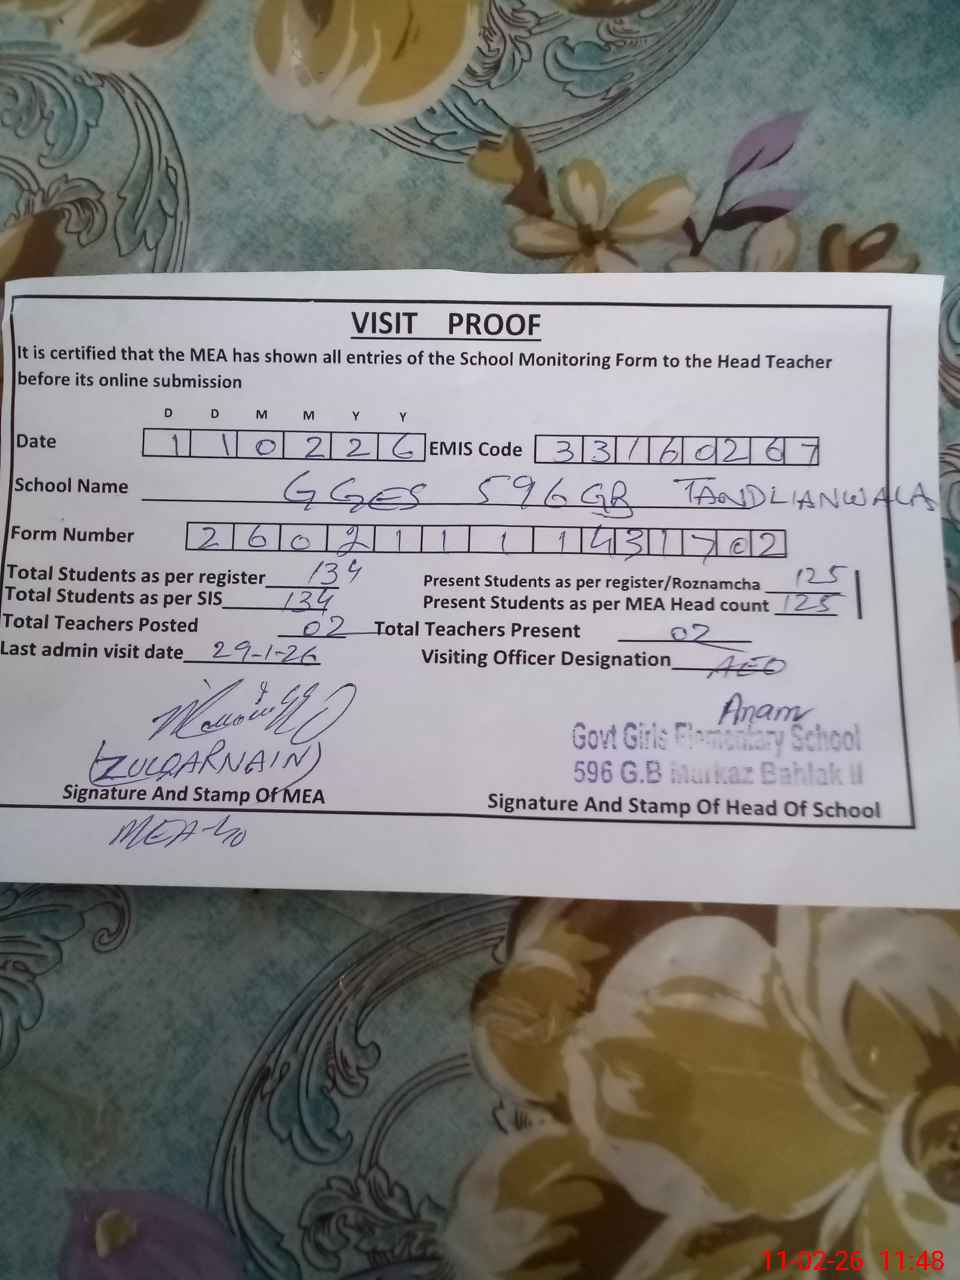 VISIT PROOF
It is certified that the MEA has shown all entries of the School Monitoring Form to the Head Teacher
before its online submission
D D M M Y Y
Date 1 1 0 2 2 6 EMIS Code 3 3 1 6 0 2 6 7
School Name GGES 596 GB TANDLIANWALA
Form Number 2 6 0 2 1 1 1 1 4 3 1 7 0 2
Total Students as per register 134 Present Students as per register/Roznamcha 125
Total Students as per SIS 134 Present Students as per MEA Head count 125
Total Teachers Posted 02 Total Teachers Present 02
Last admin visit date 29-1-26 Visiting Officer Designation AEO
Anam
Govt Girls Elementary School
(ZULQARNAIN) 596 G.B Markaz Bahlak II
Signature And Stamp Of MEA Signature And Stamp Of Head Of School
MEA-40
11-02-26 11:48